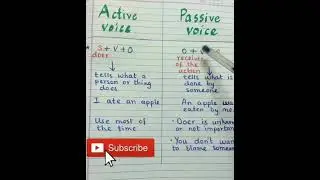 Active voice
Passive voice
S + V + O
doer
tells what a
person or thing
does
I ate an apple
Use most of
the time
O + V
receiver
of the
action
tells what is
done by
someone
An apple
eaten by me
• Doer is
or not important
• You don't want
to blame
Subscribe